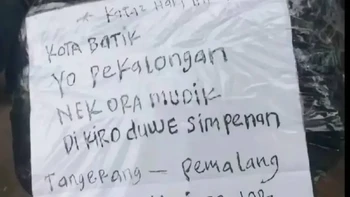 KOTA BATIK
YO PEKALONGAN
NEK ORA MUDIK
DI KIRO DUWE SIMPENAN
TANGERANG — PEMALANG